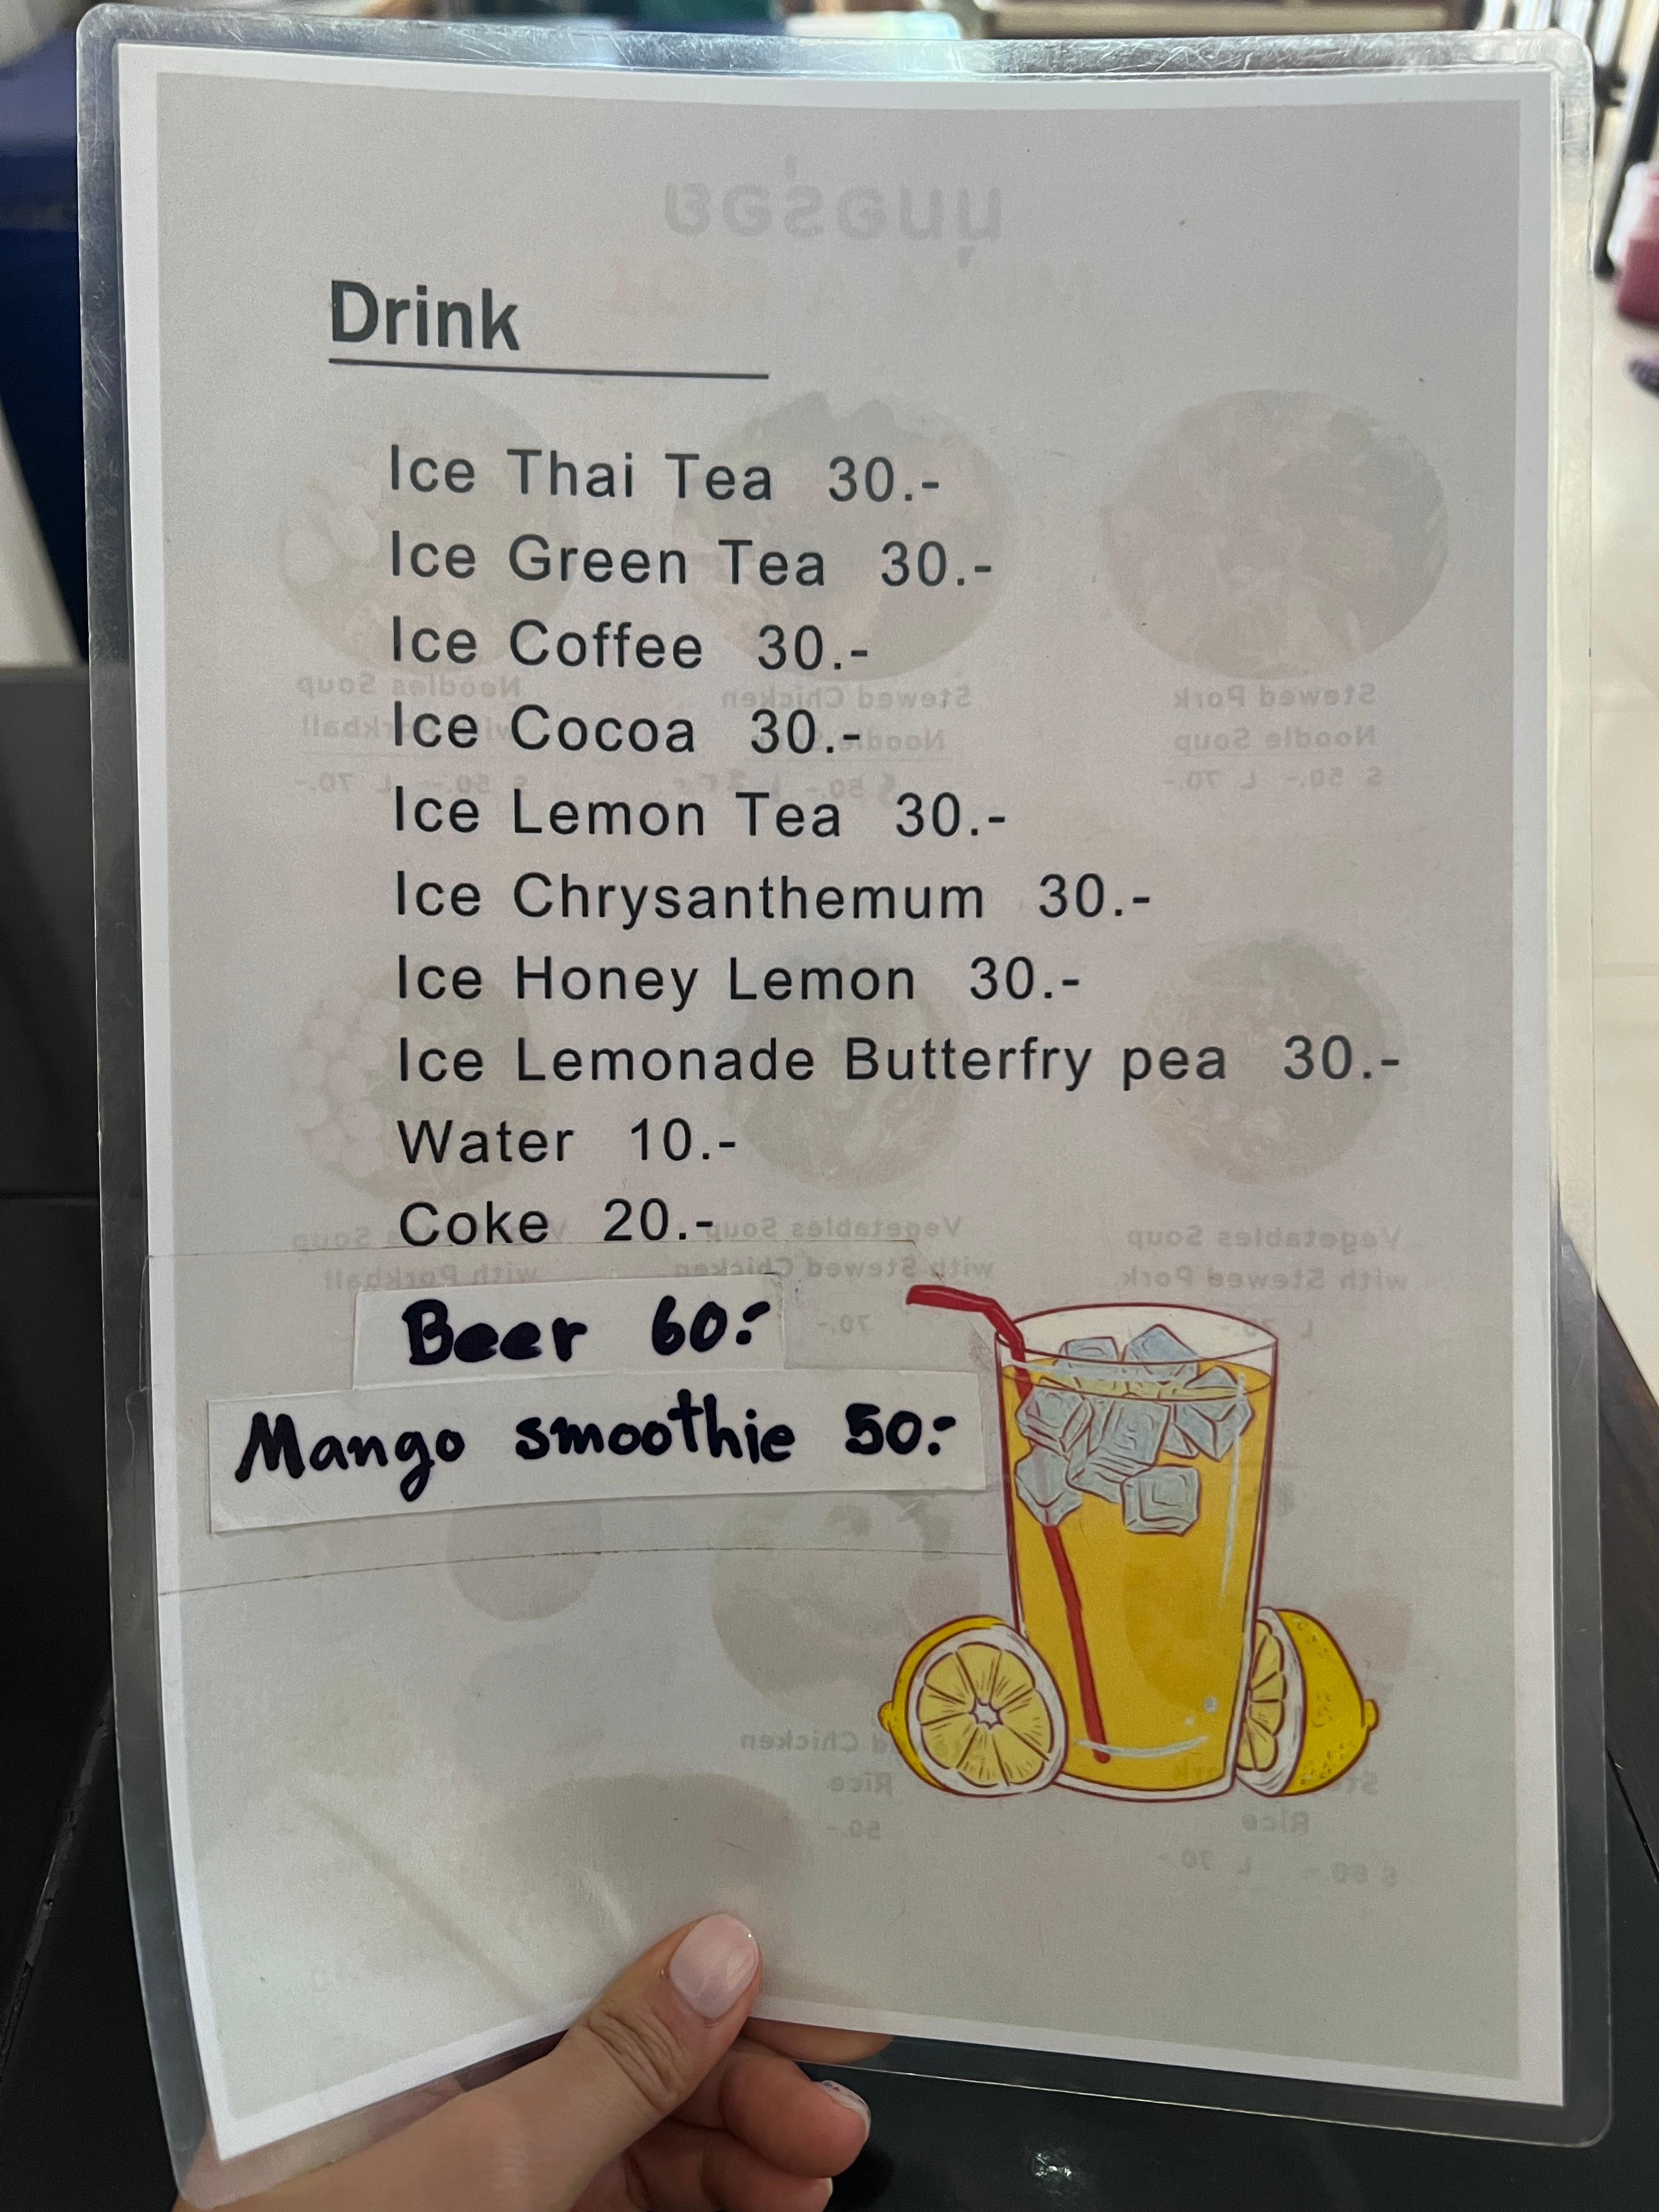 Drink
Ice Thai Tea 30.-
Ice Green Tea 30.-
Ice Coffee 30.-
Ice Cocoa 30.-
Ice Lemon Tea 30.-
Ice Chrysanthemum 30.-
Ice Honey Lemon 30.-
Ice Lemonade Butterfry pea 30.-
Water 10.-
Coke 20.-
Beer 60.-
Mango smoothie 50.-